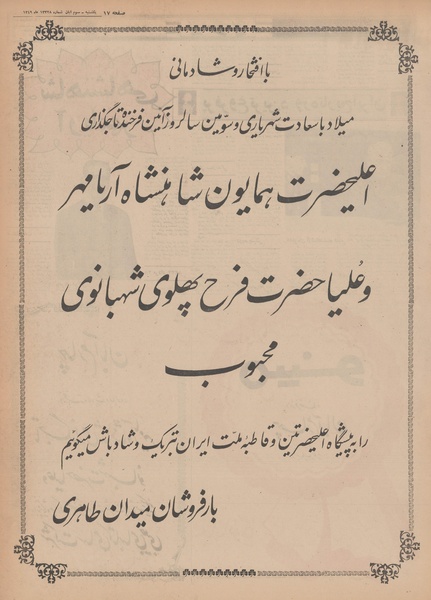 صفحه ۱۷
با افتخار و شادمانی
میلاد با سعادت شهریاری و سومین سالروز آئین فرخنده تاجگذاری
اعلیحضرت همایون شاهنشاه آریامهر
و علیاحضرت فرح پهلوی شهبانوی
محبوب
را به پیشگاه اعلیحضرتین و قاطبه ملت ایران تبریک و شادباش میگوئیم
بارفروشان میدان طاهری